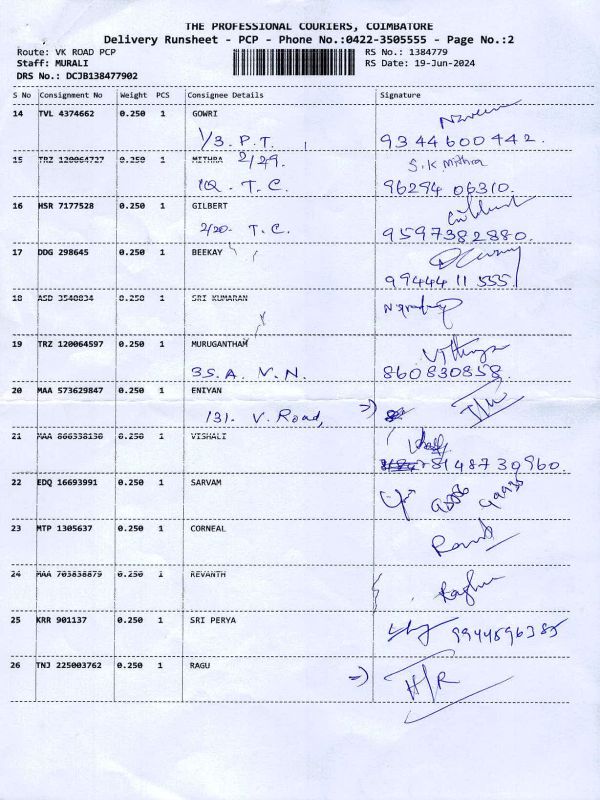 THE PROFESSIONAL COURIERS, COIMBATORE
Delivery Runsheet - PCP - Phone No.:0422-3505555 - Page No.:2
Route: VK ROAD PCP RS No.: 1384779
Staff: MURALI RS Date: 19-Jun-2024
DRS No.: DCJB138477902
S No Consignment No Weight PCS Consignee Details Signature
14 TVL 4374662 0.250 1 GOWRI Naveen
1/3. P. T. 9344600442.
15 TRZ 120064727 0.250 1 MITHRA 2/29. S.K. Mithra
10. T. C. 96294 06310.
16 HSR 7177528 0.250 1 GILBERT
2/20- T. C. 9597382880.
17 DDG 298645 0.250 1 BEEKAY
99444 11 555.
18 ASD 3540834 0.250 1 SRI KUMARAN
19 TRZ 120064597 0.250 1 MURUGANTHAM Vithya
35. A. V. N. 860830858.
20 MAA 573629847 0.250 1 ENIYAN
131. V. Road,
21 MAA 866338130 0.250 1 VISHALI
8148730960.
22 EDQ 16693991 0.250 1 SARVAM
23 MTP 1305637 0.250 1 CORNEAL
24 MAA 703838879 0.250 1 REVANTH Raghu
25 KRR 901137 0.250 1 SRI PERYA 9944596385
26 TNJ 225003762 0.250 1 RAGU H/R